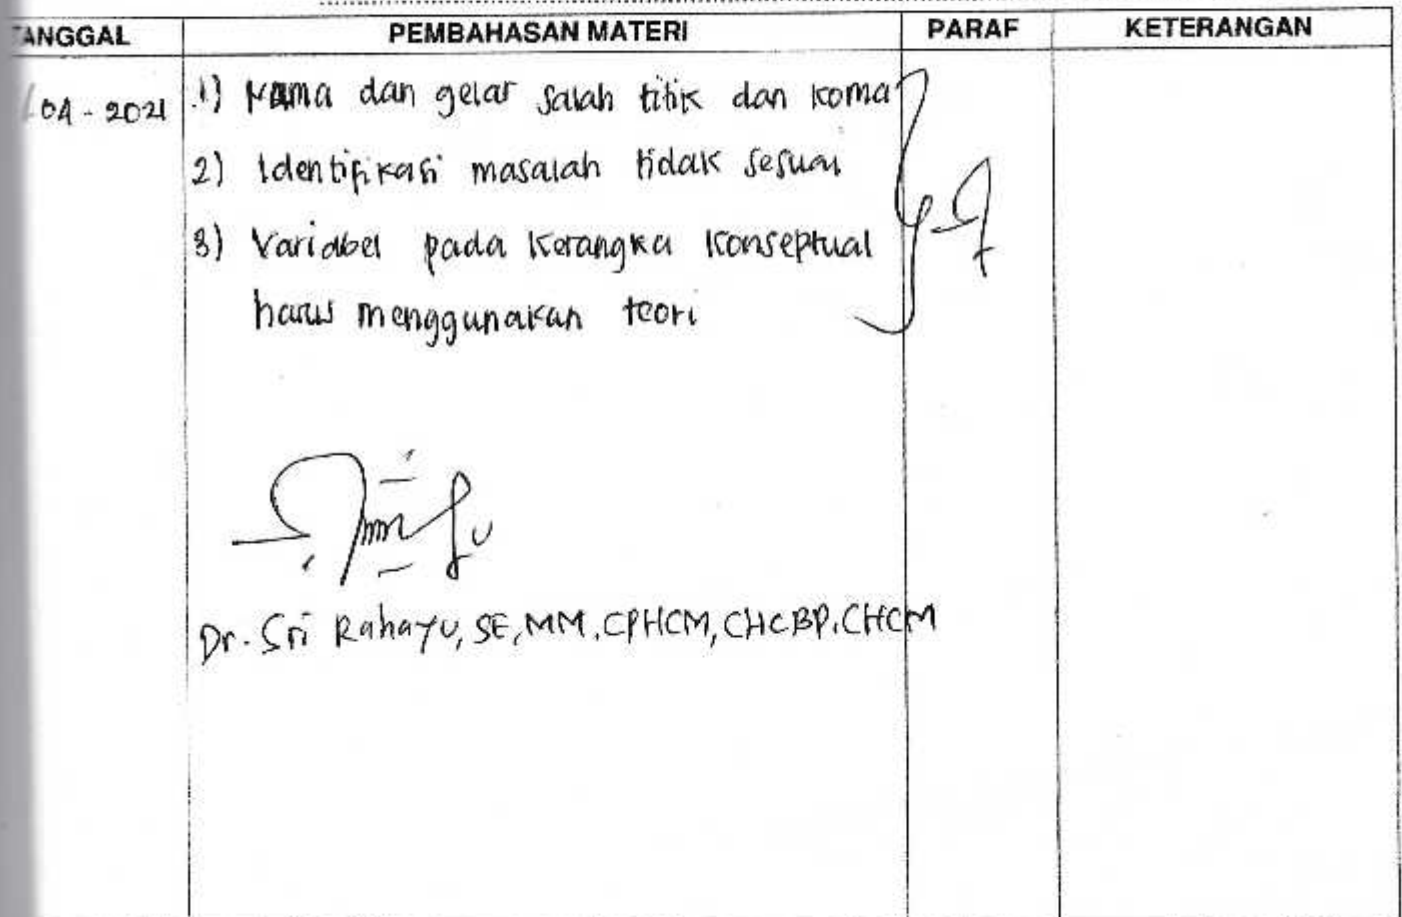 TANGGAL PEMBAHASAN MATERI PARAF KETERANGAN
04 - 2021
1) Nama dan gelar salah titik dan koma
2) Identifikasi masalah tidak sesuai
3) Variabel pada kerangka konseptual
harus menggunakan teori
Dr. Sri Rahayu, SE, MM, CPHCM, CHCBP, CHCM